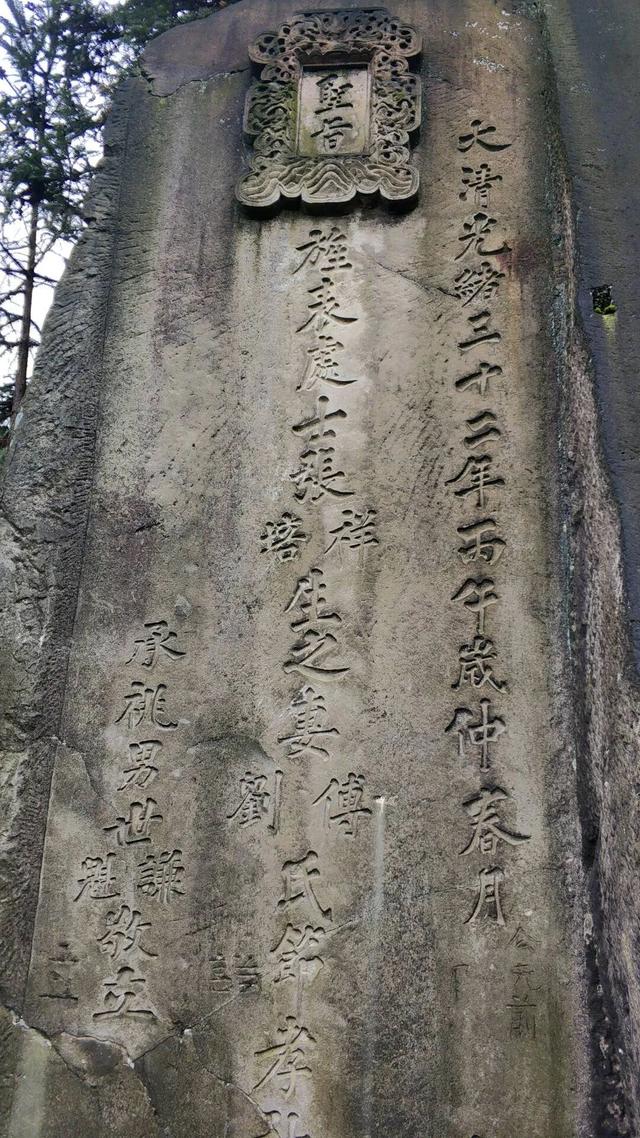 聖旨
大清光緒三十二年丙午歲仲春月
公元前
旌表處士張祥培生之妻傅劉氏節孝
承祧男世謙魁敬立